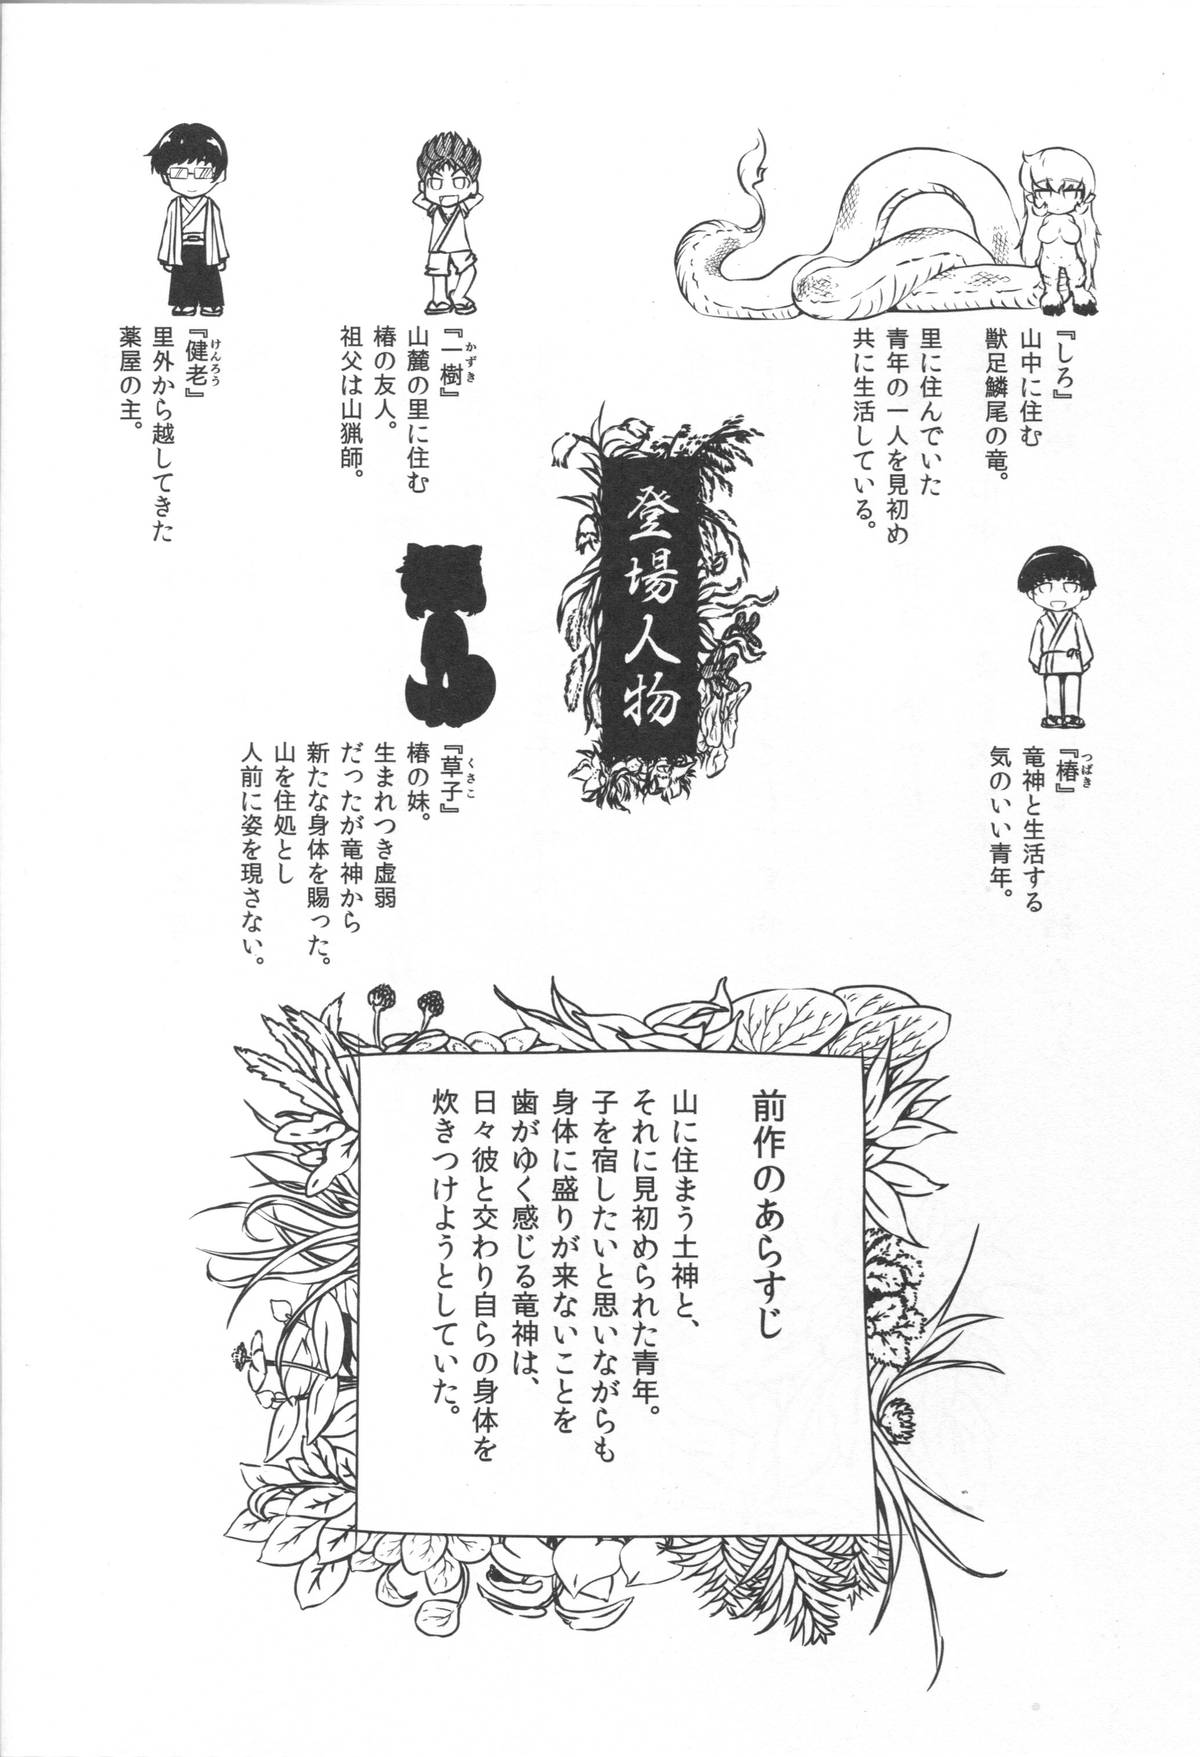 登場人物
『しろ』
山中に住む
獣足鱗尾の竜。
里に住んでいた
青年の一人を見初め
共に生活している。
『椿』
つばき
竜神と生活する
気のいい青年。
『一樹』
かずき
山麓の里に住む
椿の友人。
祖父は山猟師。
『草子』
くさこ
椿の妹。
生まれつき虚弱
だったが竜神から
新たな身体を賜った。
山を住処とし
人前に姿を現さない。
『健老』
けんろう
里外から越してきた
薬屋の主。
前作のあらすじ
山に住まう土神と、
それに見初められた青年。
子を宿したいと思いながらも
身体に盛りが来ないことを
歯がゆく感じる竜神は、
日々彼と交わり自らの身体を
炊きつけようとしていた。